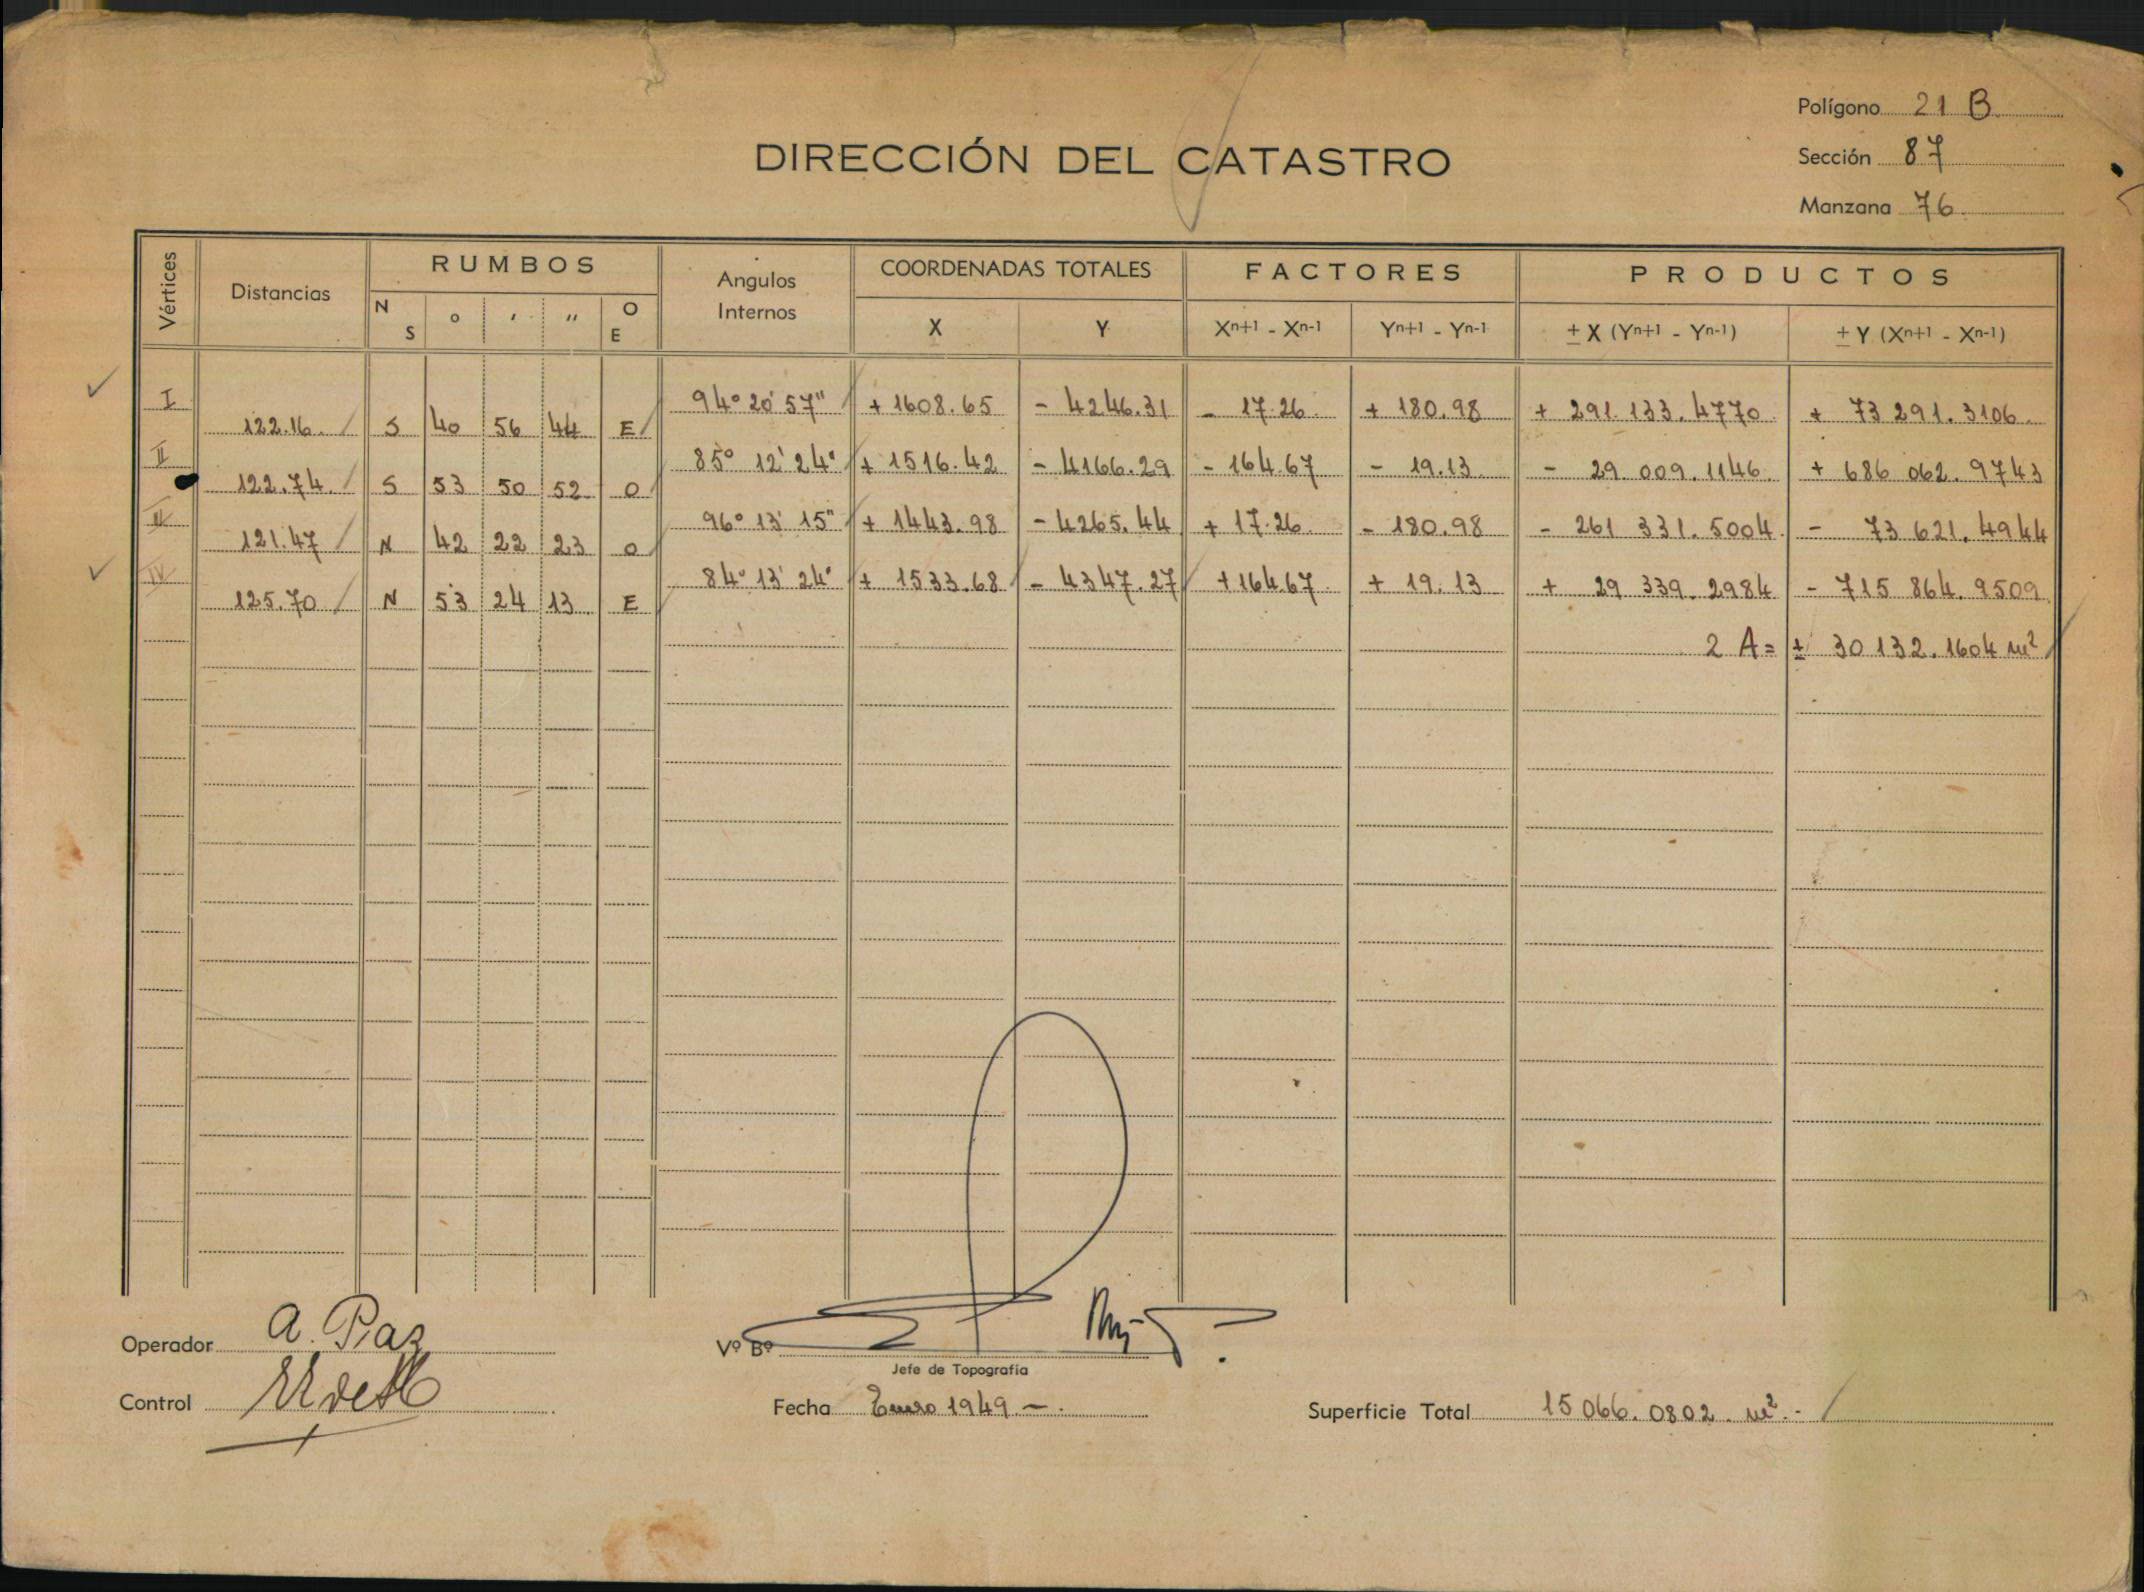 Polígono 21 B
DIRECCIÓN DEL CATASTRO
Sección 87
Manzana 76
Vértices Distancias RUMBOS Angulos Internos COORDENADAS TOTALES FACTORES PRODUCTOS
N S ° ' '' O E X Y Xn+1 - Xn-1 Yn+1 - Yn-1 ± X (Yn+1 - Yn-1) ± Y (Xn+1 - Xn-1)
I 94° 20' 57" + 1608.65 - 4246.31 - 17.26 + 180.98 + 291.133.4770 + 73 291.3106
122.16 S 40 56 44 E
II 85° 12' 24" + 1516.42 - 4166.29 - 164.67 - 19.13 - 29.009.1146 + 686 062.9743
122.74 S 53 50 52 O
III 96° 13' 15" + 1443.98 - 4265.44 + 17.26 - 180.98 - 261 331.5004 - 73 621.4944
121.47 N 42 22 23 O
IV 84° 13' 24" + 1533.68 - 4347.27 + 164.67 + 19.13 + 29 339.2984 - 715 864.9509
125.70 N 53 24 13 E
2 A = ± 30 132.1604 m²
Operador A. Paz
Vº Bº
Jefe de Topografía
Control
Fecha Enero 1949.-.
Superficie Total 15 066.0802 m².-